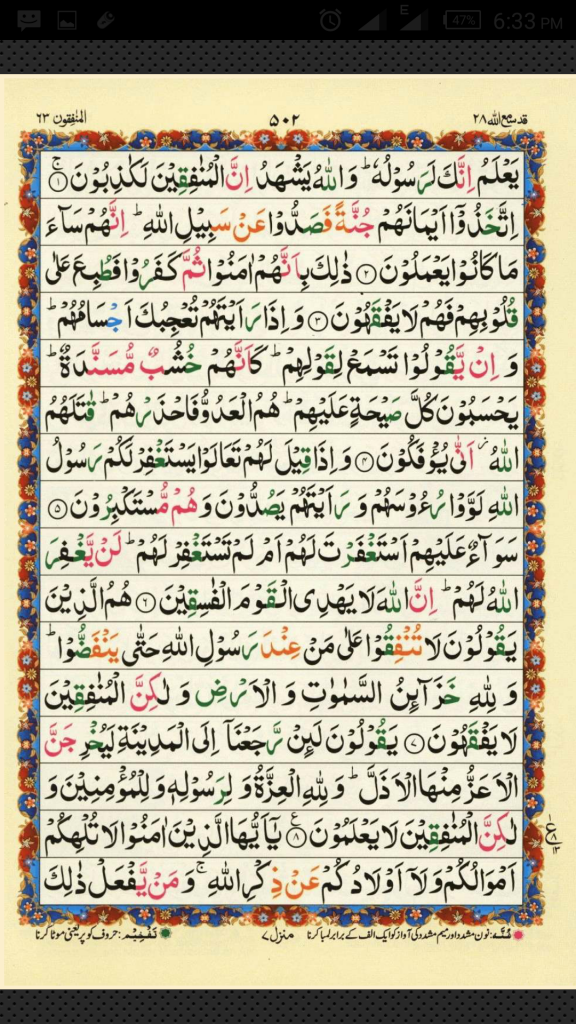 E 47% 6:33 PM
المنٰفقون ٦٣ ٥٠٢ قد سمع الله ٢٨
يَعْلَمُ اِنَّكَ لَرَسُوْلُهٗ ؕ وَاللّٰهُ يَشْهَدُ اِنَّ الْمُنٰفِقِيْنَ لَكٰذِبُوْنَ ۚ ﴿۱﴾
اِتَّخَذُوْۤا اَيْمَانَهُمْ جُنَّةً فَصَدُّوْا عَنْ سَبِيْلِ اللّٰهِ ؕ اِنَّهُمْ سَآءَ
مَا كَانُوْا يَعْمَلُوْنَ ﴿۲﴾ ذٰلِكَ بِاَنَّهُمْ اٰمَنُوْا ثُمَّ كَفَرُوْا فَطُبِعَ عَلٰى
قُلُوْبِهِمْ فَهُمْ لَا يَفْقَهُوْنَ ﴿۳﴾ وَ اِذَا رَاَيْتَهُمْ تُعْجِبُكَ اَجْسَامُهُمْ ؕ
وَ اِنْ يَّقُوْلُوْا تَسْمَعْ لِقَوْلِهِمْ ؕ كَاَنَّهُمْ خُشُبٌ مُّسَنَّدَةٌ ؕ
يَحْسَبُوْنَ كُلَّ صَيْحَةٍ عَلَيْهِمْ ؕ هُمُ الْعَدُوُّ فَاحْذَرْهُمْ ؕ قٰتَلَهُمُ
اللّٰهُ ؗ اَنّٰى يُؤْفَكُوْنَ ﴿۴﴾ وَ اِذَا قِيْلَ لَهُمْ تَعَالَوْا يَسْتَغْفِرْ لَكُمْ رَسُوْلُ
اللّٰهِ لَوَّوْا رُءُوْسَهُمْ وَ رَاَيْتَهُمْ يَصُدُّوْنَ وَ هُمْ مُّسْتَكْبِرُوْنَ ﴿۵﴾
سَوَآءٌ عَلَيْهِمْ اَسْتَغْفَرْتَ لَهُمْ اَمْ لَمْ تَسْتَغْفِرْ لَهُمْ ؕ لَنْ يَّغْفِرَ
اللّٰهُ لَهُمْ ؕ اِنَّ اللّٰهَ لَا يَهْدِى الْقَوْمَ الْفٰسِقِيْنَ ﴿۶﴾ هُمُ الَّذِيْنَ
يَقُوْلُوْنَ لَا تُنْفِقُوْا عَلٰى مَنْ عِنْدَ رَسُوْلِ اللّٰهِ حَتّٰى يَنْفَضُّوْا ؕ
وَ لِلّٰهِ خَزَآئِنُ السَّمٰوٰتِ وَ الْاَرْضِ وَ لٰكِنَّ الْمُنٰفِقِيْنَ
لَا يَفْقَهُوْنَ ﴿۷﴾ يَقُوْلُوْنَ لَئِنْ رَّجَعْنَاۤ اِلَى الْمَدِيْنَةِ لَيُخْرِجَنَّ
الْاَعَزُّ مِنْهَا الْاَذَلَّ ؕ وَ لِلّٰهِ الْعِزَّةُ وَ لِرَسُوْلِهٖ وَ لِلْمُؤْمِنِيْنَ وَ
لٰكِنَّ الْمُنٰفِقِيْنَ لَا يَعْلَمُوْنَ ﴿۸﴾ يٰۤاَيُّهَا الَّذِيْنَ اٰمَنُوْا لَا تُلْهِكُمْ
اَمْوَالُكُمْ وَلَاۤ اَوْلَادُكُمْ عَنْ ذِكْرِ اللّٰهِ ۚ وَ مَنْ يَّفْعَلْ ذٰلِكَ
غُنّہ: نون مشدد اور میم مشدد کی آواز کو ایک الف کے برابر لمبا کرنا منزل ۷ تفخیم: حروف کو پر یعنی موٹا کرنا